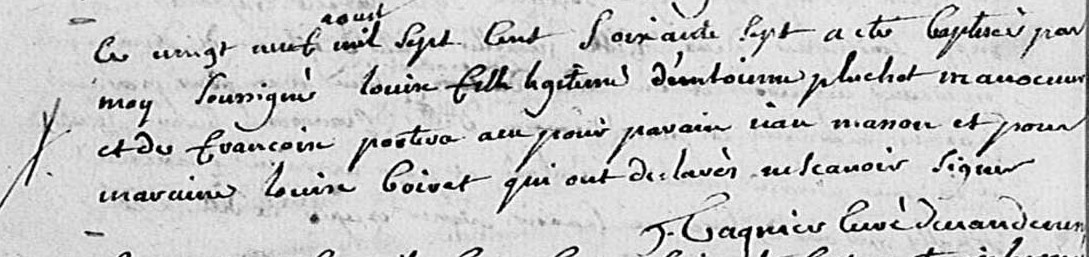 aoust
Le vingt neuf mil sept cent soixante sept a ete baptisée par
moy soussigné louise fille legitime d'antoinne pluchot manoeuvre
et de francoise a eu pour parain jean masson et pour
maraine louise boivet qui ont declarés ne scavoir signer
curé